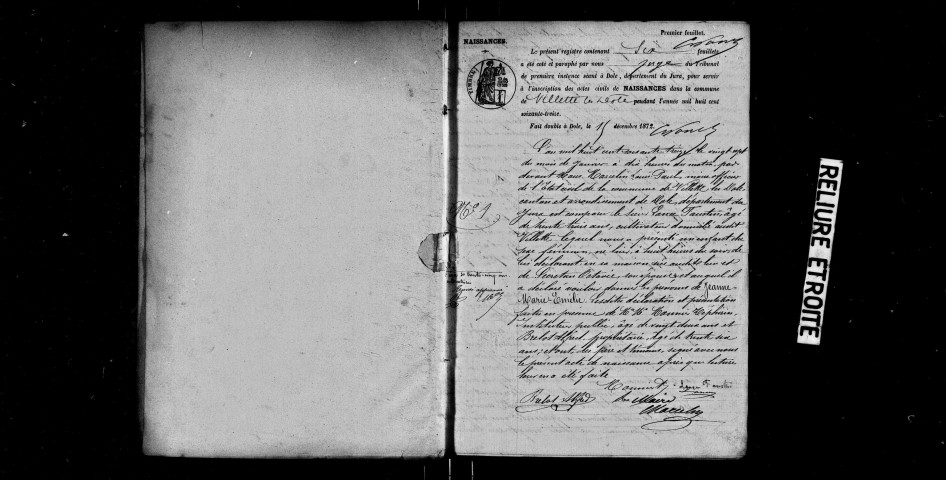 Premier feuillet.
NAISSANCES.
Le présent registre contenant Six feuillets
a été coté et paraphé par nous juge du Tribunal
de première instance séant à Dole, département du Jura, pour servir
à l'inscription des actes civils de NAISSANCES dans la commune
de Villette les Dole pendant l'année mil huit cent
soixante-treize.
Fait double à Dole, le 15 décembre 1872.
TIMBRE
L'an mil huit cent soixante treize le vingt sept
du mois de Janvier à dix heures du matin par
devant Nous Louis Paul, maire officier
de l'Etat civil de la commune de Villette les Dole
canton et arrondissement de Dole, département du
Jura est comparu le sieur Faustin, âgé
de trente trois ans, cultivateur domicilié audit
Villette, lequel nous a présenté un enfant du
sexe féminin, né hier à huit heures du soir, de
lui déclarant en sa maison sise audit lieu et
de Octavie son épouse, et auquel il
a déclaré vouloir donner les prénoms de Jeanne
Marie Emélie. Lesdites déclaration et présentation
faites en présence de Mrs
Instituteur public, âgé de vingt deux ans et
Belot Alfred, propriétaire, âgé de trente six
ans; et ont, les père et témoins, signé avec nous
le présent acte de naissance après que lecture
leur en a été faite
No 1
Belot Alfred
Le Maire
RELIURE ETROITE